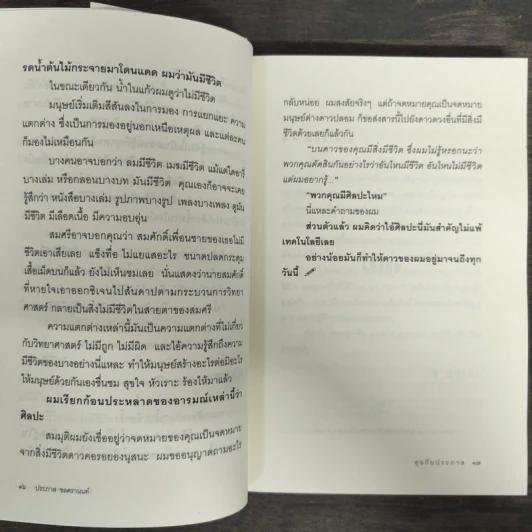 รดน้ำต้นไม้กระจายมาโดนแดด ผมว่ามันมีชีวิต
ในขณะเดียวกัน น้ำในแก้วผมดูว่าไม่มีชีวิต
มนุษย์เริ่มเติมสีสันลงในการมอง การแยกแยะ ความ
แตกต่าง ซึ่งเป็นการมองอยู่นอกเหนือเหตุผล และแต่ละคน
ก็มองไม่เหมือนกัน
บางคนอาจบอกว่า ลมมีชีวิต เมฆมีชีวิต แม้แต่ไดอารี่
บางเล่ม หรือกลอนบางบท มันมีชีวิต คุณเองก็อาจจะเคย
รู้สึกว่า หนังสือบางเล่ม รูปภาพบางรูป เพลงบางเพลง ดูมัน
มีชีวิต มีเลือดเนื้อ มีความอบอุ่น
สมศรีอาจบอกคุณว่า สมศักดิ์เพื่อนชายของเธอไม่มี
ชีวิตเอาเสียเลย แข็งทื่อ ไม่แยแสอะไร ขนาดปลดกระดุม
เสื้อเม็ดบนก็แล้ว ยังไม่เห็นชมเลย นั่นแสดงว่านายสมศักดิ์
ที่หายใจเอาออกซิเจนไปสันดาปตามกระบวนการวิทยา
ศาสตร์ กลายเป็นสิ่งไม่มีชีวิตในสายตาของสมศรี
ความแตกต่างเหล่านี้มันเป็นความแตกต่างที่ไม่เกี่ยว
กับวิทยาศาสตร์ ไม่มีถูก ไม่มีผิด และไอ้ความรู้สึกถึงความ
มีชีวิตของบางอย่างนี้แหละ ทำให้มนุษย์สร้างอะไรต่อมิอะไร
ให้มนุษย์ด้วยกันเองชื่นชม สุขใจ หัวเราะ ร้องไห้มาแล้ว
ผมเรียกก้อนประหลาดของอารมณ์เหล่านี้ว่า
ศิลปะ
สมมุติผมยังเชื่ออยู่ว่าจดหมายของคุณเป็นจดหมาย
จากสิ่งมีชีวิตดาวคอรอยองนุสนะ ผมขออนุญาตถามอะไร
๑๖ ประภาส ชลศรานนท์
กลับหน่อย ผมสงสัยจริงๆ แต่ถ้าจดหมายคุณเป็นจดหมาย
มนุษย์ต่างดาวปลอม ก็ขอส่งสารนี้ไปยังดาวดวงอื่นที่มีสิ่งมี
ชีวิตด้วยเลยก็แล้วกัน
"บนดาวของคุณมีสิ่งมีชีวิต ซึ่งผมไม่รู้หรอกนะว่า
พวกคุณตัดสินกันอย่างไรว่าอันไหนมีชีวิต อันไหนไม่มีชีวิต
แต่ผมอยากรู้..."
"พวกคุณมีศิลปะไหม"
นี่แหละคำถามของผม
ส่วนตัวแล้ว ผมคิดว่าไอ้ศิลปะนี่มันสำคัญไม่แพ้
เทคโนโลยีเลย
อย่างน้อยมันก็ทำให้ดาวของผมอยู่มาจนถึงทุก
วันนี้
คุยกับประภาส ๑๗